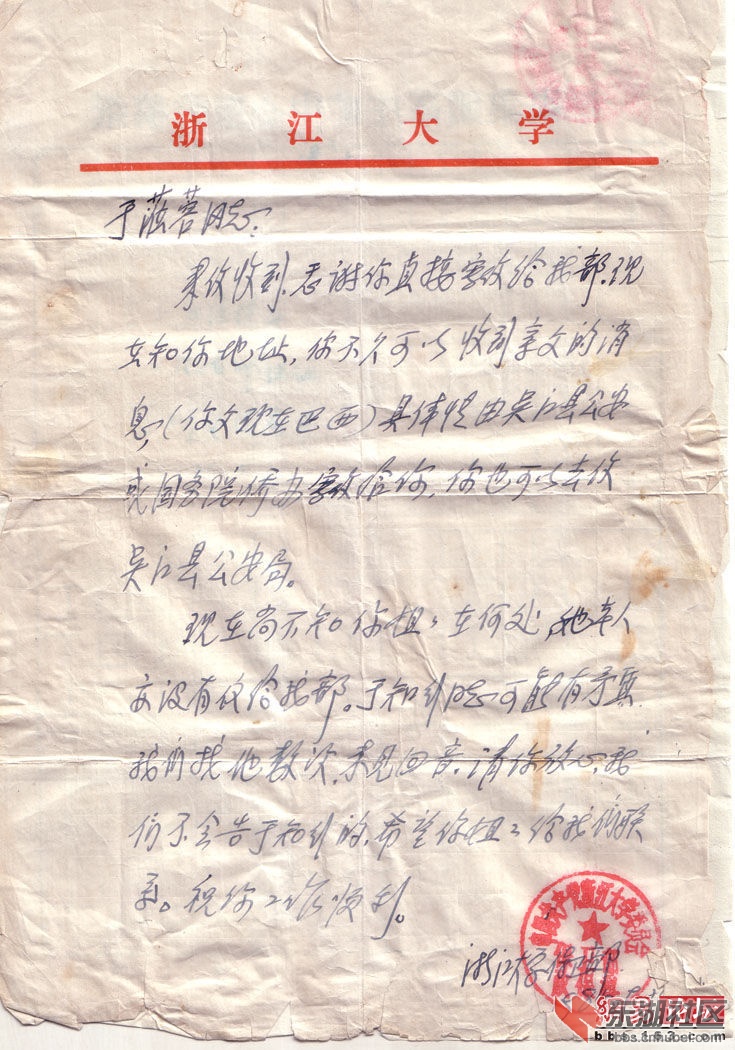 浙江大学
于蓝蓉同志:
来信收到.感谢你直接写信给我部.现
在知你地址,你不久可以收到亲父的消
息,(你父现在巴西)具体情由吴江县公安
或国务院侨办写信给你,你也可以去信
吴江县公安局。
现在尚不知你姐：在何处,她本人
亦没有信给我部。于知 同志可能有矛盾
我们找他数次,未见回音.请你放心,我
们不会告于知 的.希望你姐：给我们联
系。祝你工作顺利。
浙江大学保卫部
中国共产党浙江大学委员会
东湖社区
bbs.cnhubei.com